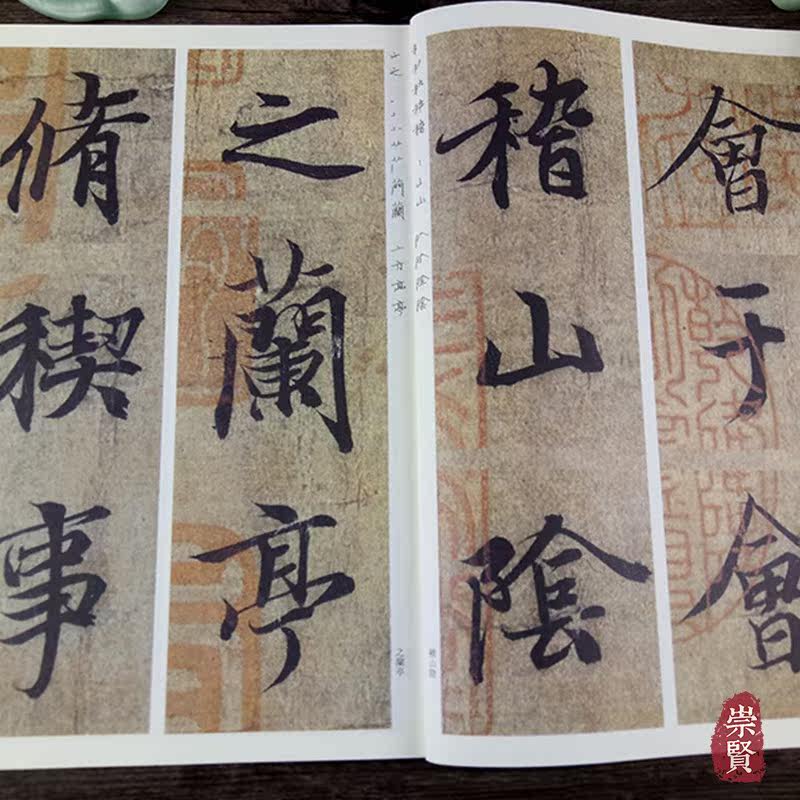 會于會
稽山陰
之蘭亭
脩稧事
稽山陰
之蘭亭
崇賢